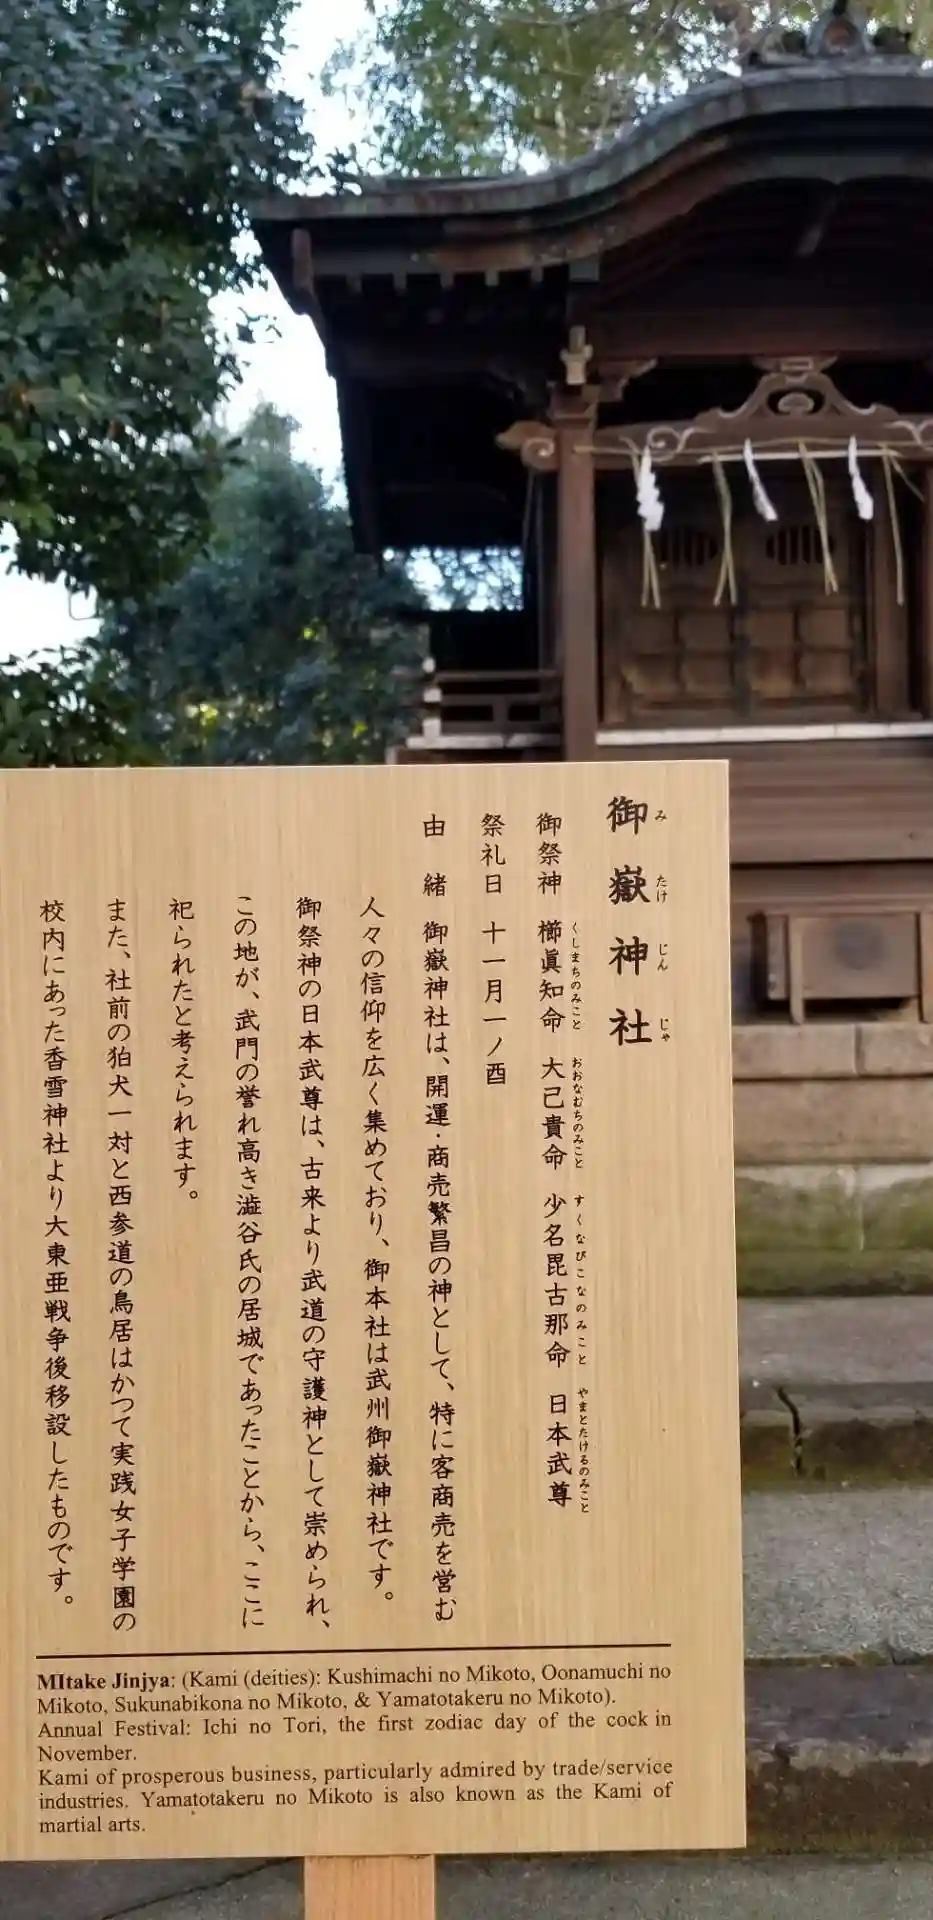 御嶽神社
みたけじんじゃ
御祭神 櫛眞知命 大己貴命 少名毘古那命 日本武尊
くしまちのみこと おおなむちのみこと すくなびこなのみこと やまとたけるのみこと
祭礼日 十一月一ノ酉
由 緒 御嶽神社は、開運・商売繁昌の神として、特に客商売を営む
人々の信仰を広く集めており、御本社は武州御嶽神社です。
御祭神の日本武尊は、古来より武道の守護神として崇められ、
この地が、武門の誉れ高き澁谷氏の居城であったことから、ここに
祀られたと考えられます。
また、社前の狛犬一対と西参道の鳥居はかつて実践女子学園の
校内にあった香雪神社より大東亜戦争後移設したものです。
MItake Jinjya: (Kami (deities): Kushimachi no Mikoto, Oonamuchi no
Mikoto, Sukunabikona no Mikoto, & Yamatotakeru no Mikoto).
Annual Festival: Ichi no Tori, the first zodiac day of the cock in
November.
Kami of prosperous business, particularly admired by trade/service
industries. Yamatotakeru no Mikoto is also known as the Kami of
martial arts.